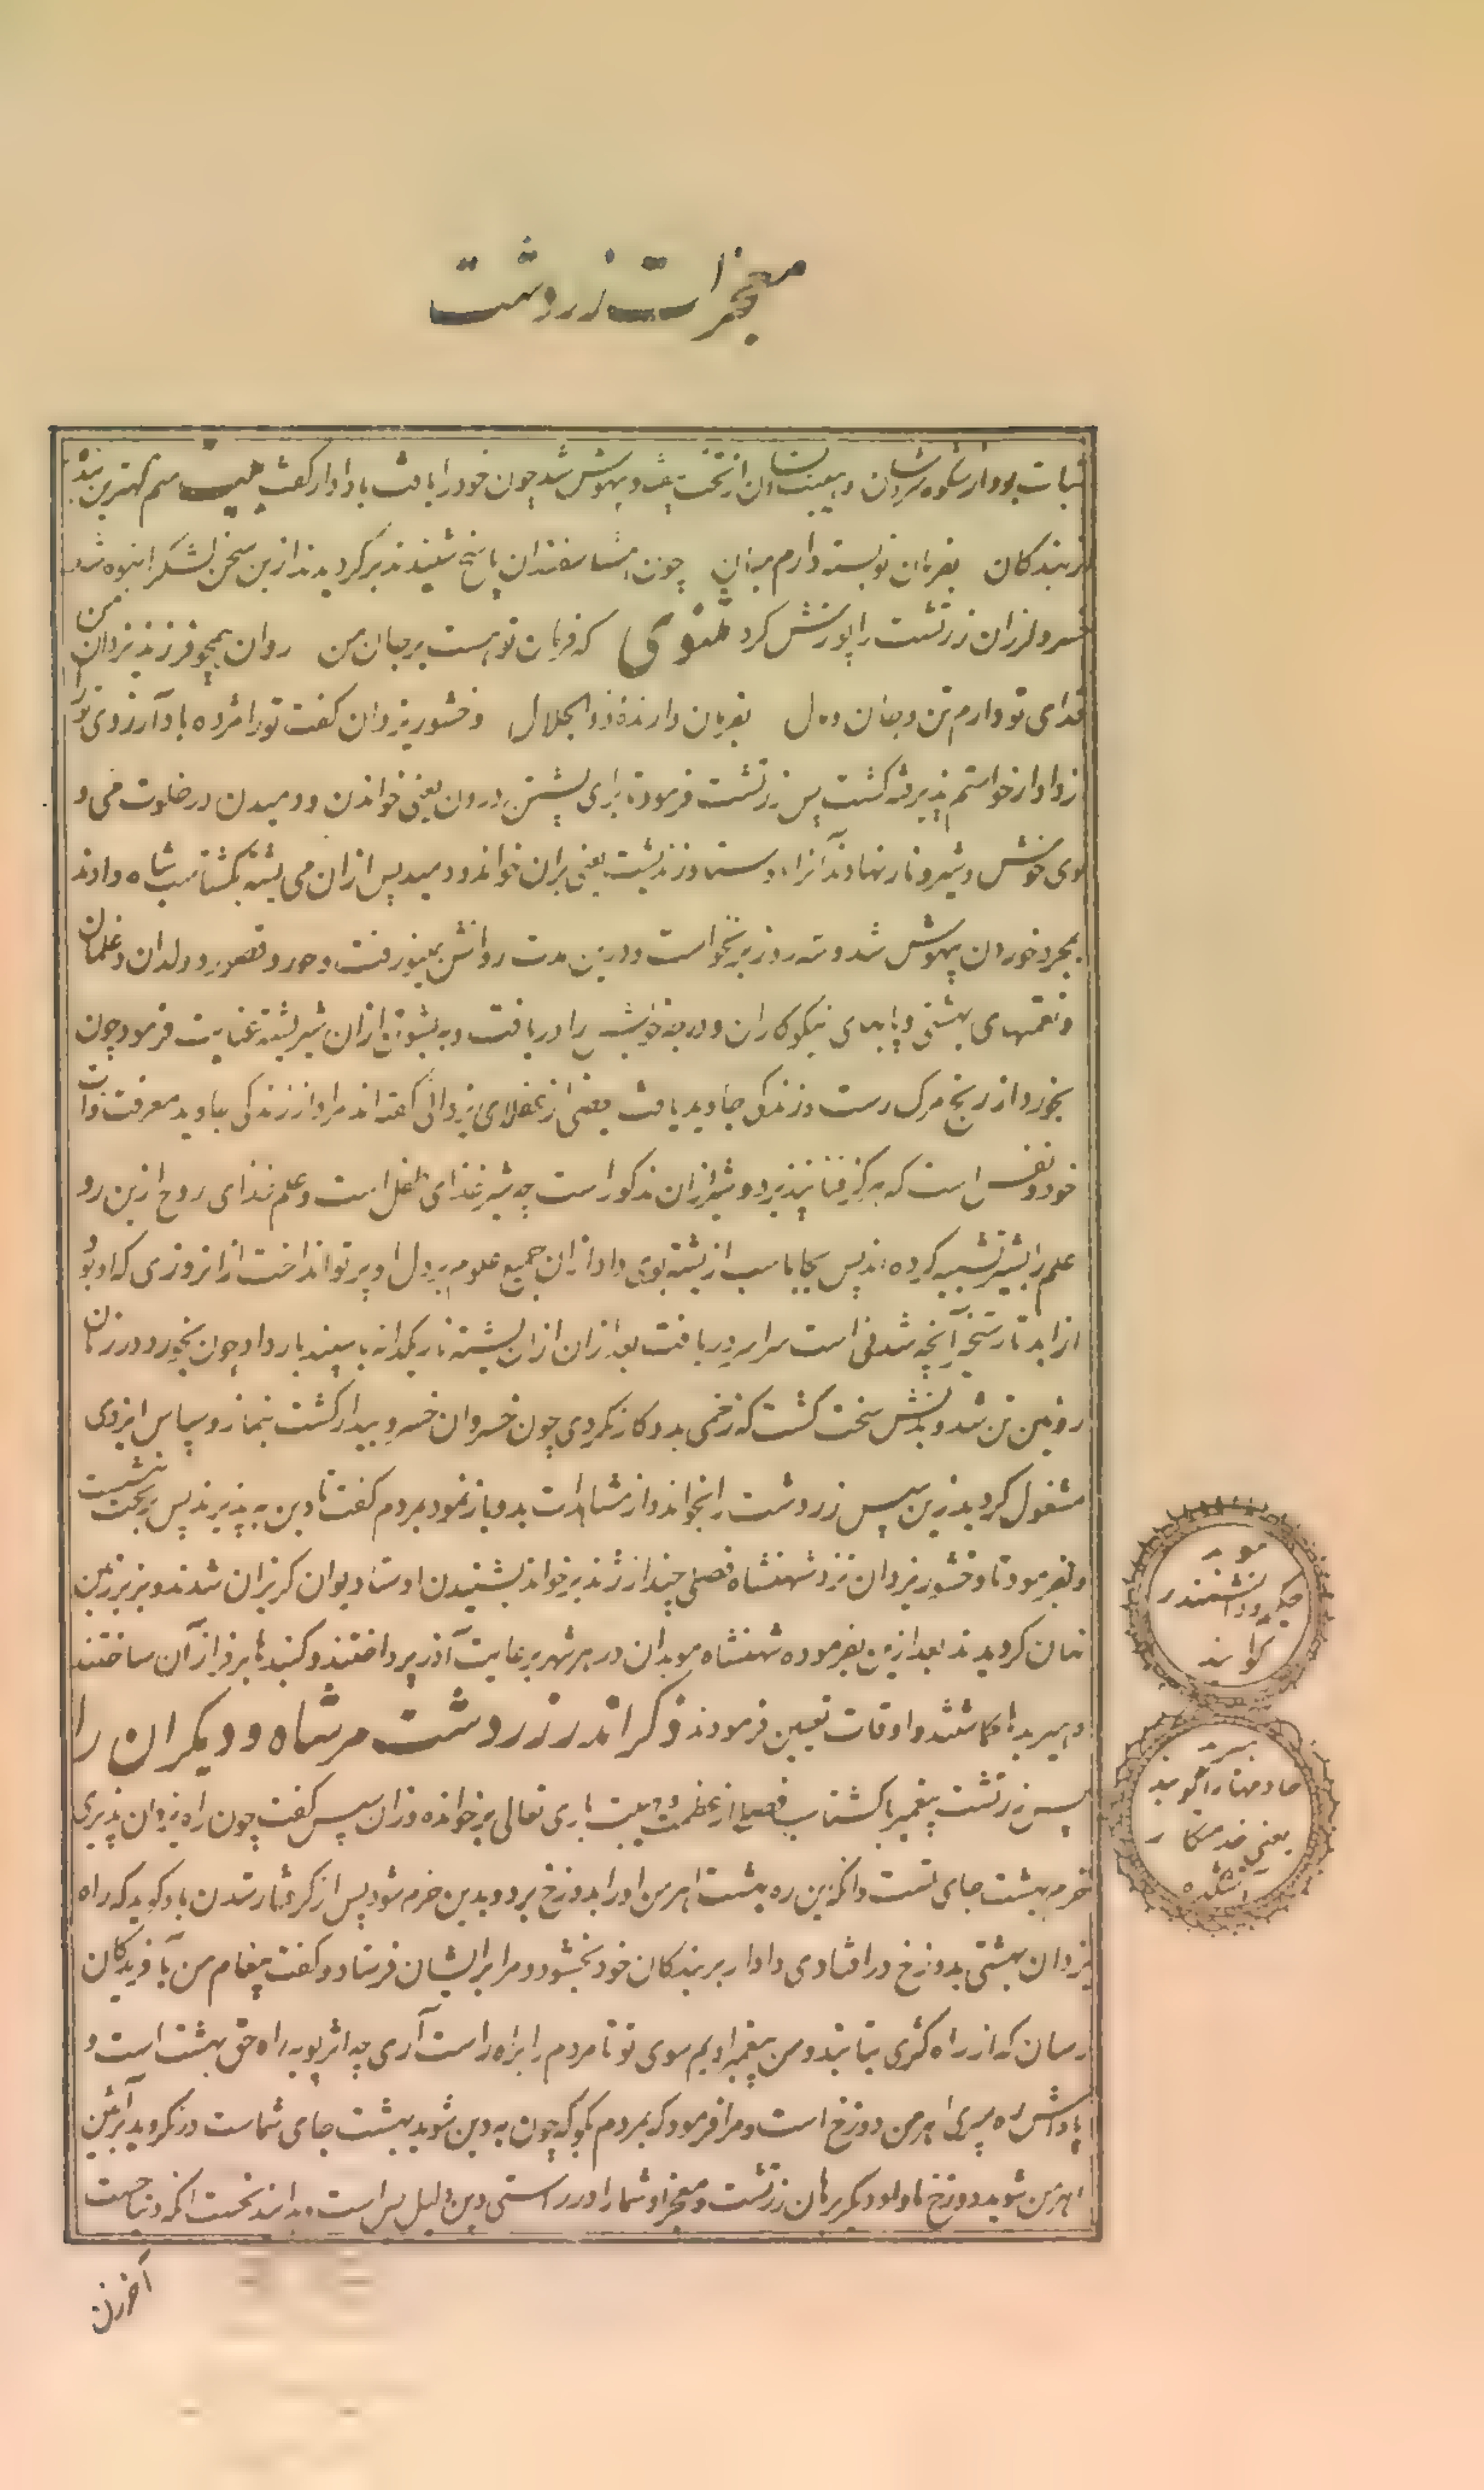 معجزات زردشت
ثبات بود از شکوه سروشان و هیبت ایشان از تخت بیفتاد و بیهوش شد چون خود را یافت با دادار گفت بیت منم کهترین بنده
از بندکان بفرمان تو بسته دارم میان چون امشاسفندان پاسخ شنیدند برکردیدند ازین سخن لشکر انبوه شد
خسرو لرزان زرتشت را پوزش کرد مثنوی که فرمان تو هست بر جان من روان همچو فرزند یزدان من
فدای تو دارم تن و جان و دل بفرمان دارنده ذو الجلال وخشور یزدان کفت تو را مژده باد آرزوی تو
از دادار خواستم پذیرفته کشت پس زرتشت فرمود تا برای یشتن درون یعنی خواندن و دمیدن در خلوت می و
بوی خوش و شیر و نار نهادند آنرا به اوستا و زند یشت یعنی بران خواند و دمید پس ازان می یشته بکشتاسب شاه دادند
بمجرد خوردن بیهوش شد و سه روز برنخواست و درین مدت روانش بمینو رفت و حور و قصور و ولدان و غلمان
و نعمتهای بهشتی و پایهای نیکوکاران و درجه خویش را دریافت و به پشوتن ازان شیر یشته عنایت فرمود چون
بخورد از رنج مرک رست و زندکی جاوید یافت بعضی از عقلای یزدانی کفته اند مراد از زندکی جاوید معرفت ذات
خود و نفس است که هرکز فنا نپذیرد و شیر ازان مذکور است چه شیر غذای طفل است و علم غذای روح ازین رو
علم را بشیر تشبیه کرده اند پس بجاماسب از یشته بوی داد ازان جمیع علوم بر دل او پرتو انداخت از انروزی که او بود
از ابد تا رستخیز آنچه شدنی است سراسر دریافت بعد ازان ازان یشته نار یکدانه به اسپندیار داد چون بخورد در زمان
روئین تن شد و بدنش سخت کشت که زخمی بدو کار نکردی چون خسروان خسرو بیدار کشت بنماز و سپاس ایزدی
مشغول کردید زین سپس زردشت را بخواند و از مشاهدات بدو باز نمود بمردم کفت تا دین به پذیرند پس بتخت نشست
و بفرمود تا وخشور یزدان نزد شهنشاه فصلی چند از ژند بر خواند بشنیدن اوستا دیوان کریزان شدند و بزیر زمین
نهان کردیدند بعد ازین بفرموده شهنشاه موبدان در هر شهر برعایت آذر پرداختند و کنبدها بر فراز آن ساختند
و هیربدها کماشتند و اوقات تعیین فرمودند ذکر اندرز زردشت مر شاه و دیکران را
سپس زرتشت پیغمبر با کشتاسب فصلی از عظمت و هیبت باری تعالی بر خوانده و زان سپس کفت چون راه یزدان پذیری
خرم بهشت جای تست و انکه زین ره بهشت اهرمن او را بدوزخ برد و بدین خرم شود پس از کرفتار شدن باو کوید که راه
یزدان بهشتی بدوزخ در افتادی دادار بر بندکان خود بخشود و مرا بر ایشان فرستاد و کفت پیغام من بآفریدکان
رسان که از راه کژی بتابند و من پیغمبر اویم سوی تو تا مردم را براه راست آری چه اثر پویه راه حق بهشت است و
پاداش ره سپری اهرمن دوزخ است و مرا فرمود که بمردم بکو که چون به دین شوید بهشت جای شماست و نکروید بآئین
اهرمن شوید و دوزخ ماوا و دیکر برهان زرتشت و معجز او شما را در راستی دین دلیل بس است بدانند نخست انکه دنیا جهت
آخر زن
موبد
حکیم و دانشمند را
کویند
هیربد
خادمه نار را کویند
یعنی خدمتکار
آتشکده